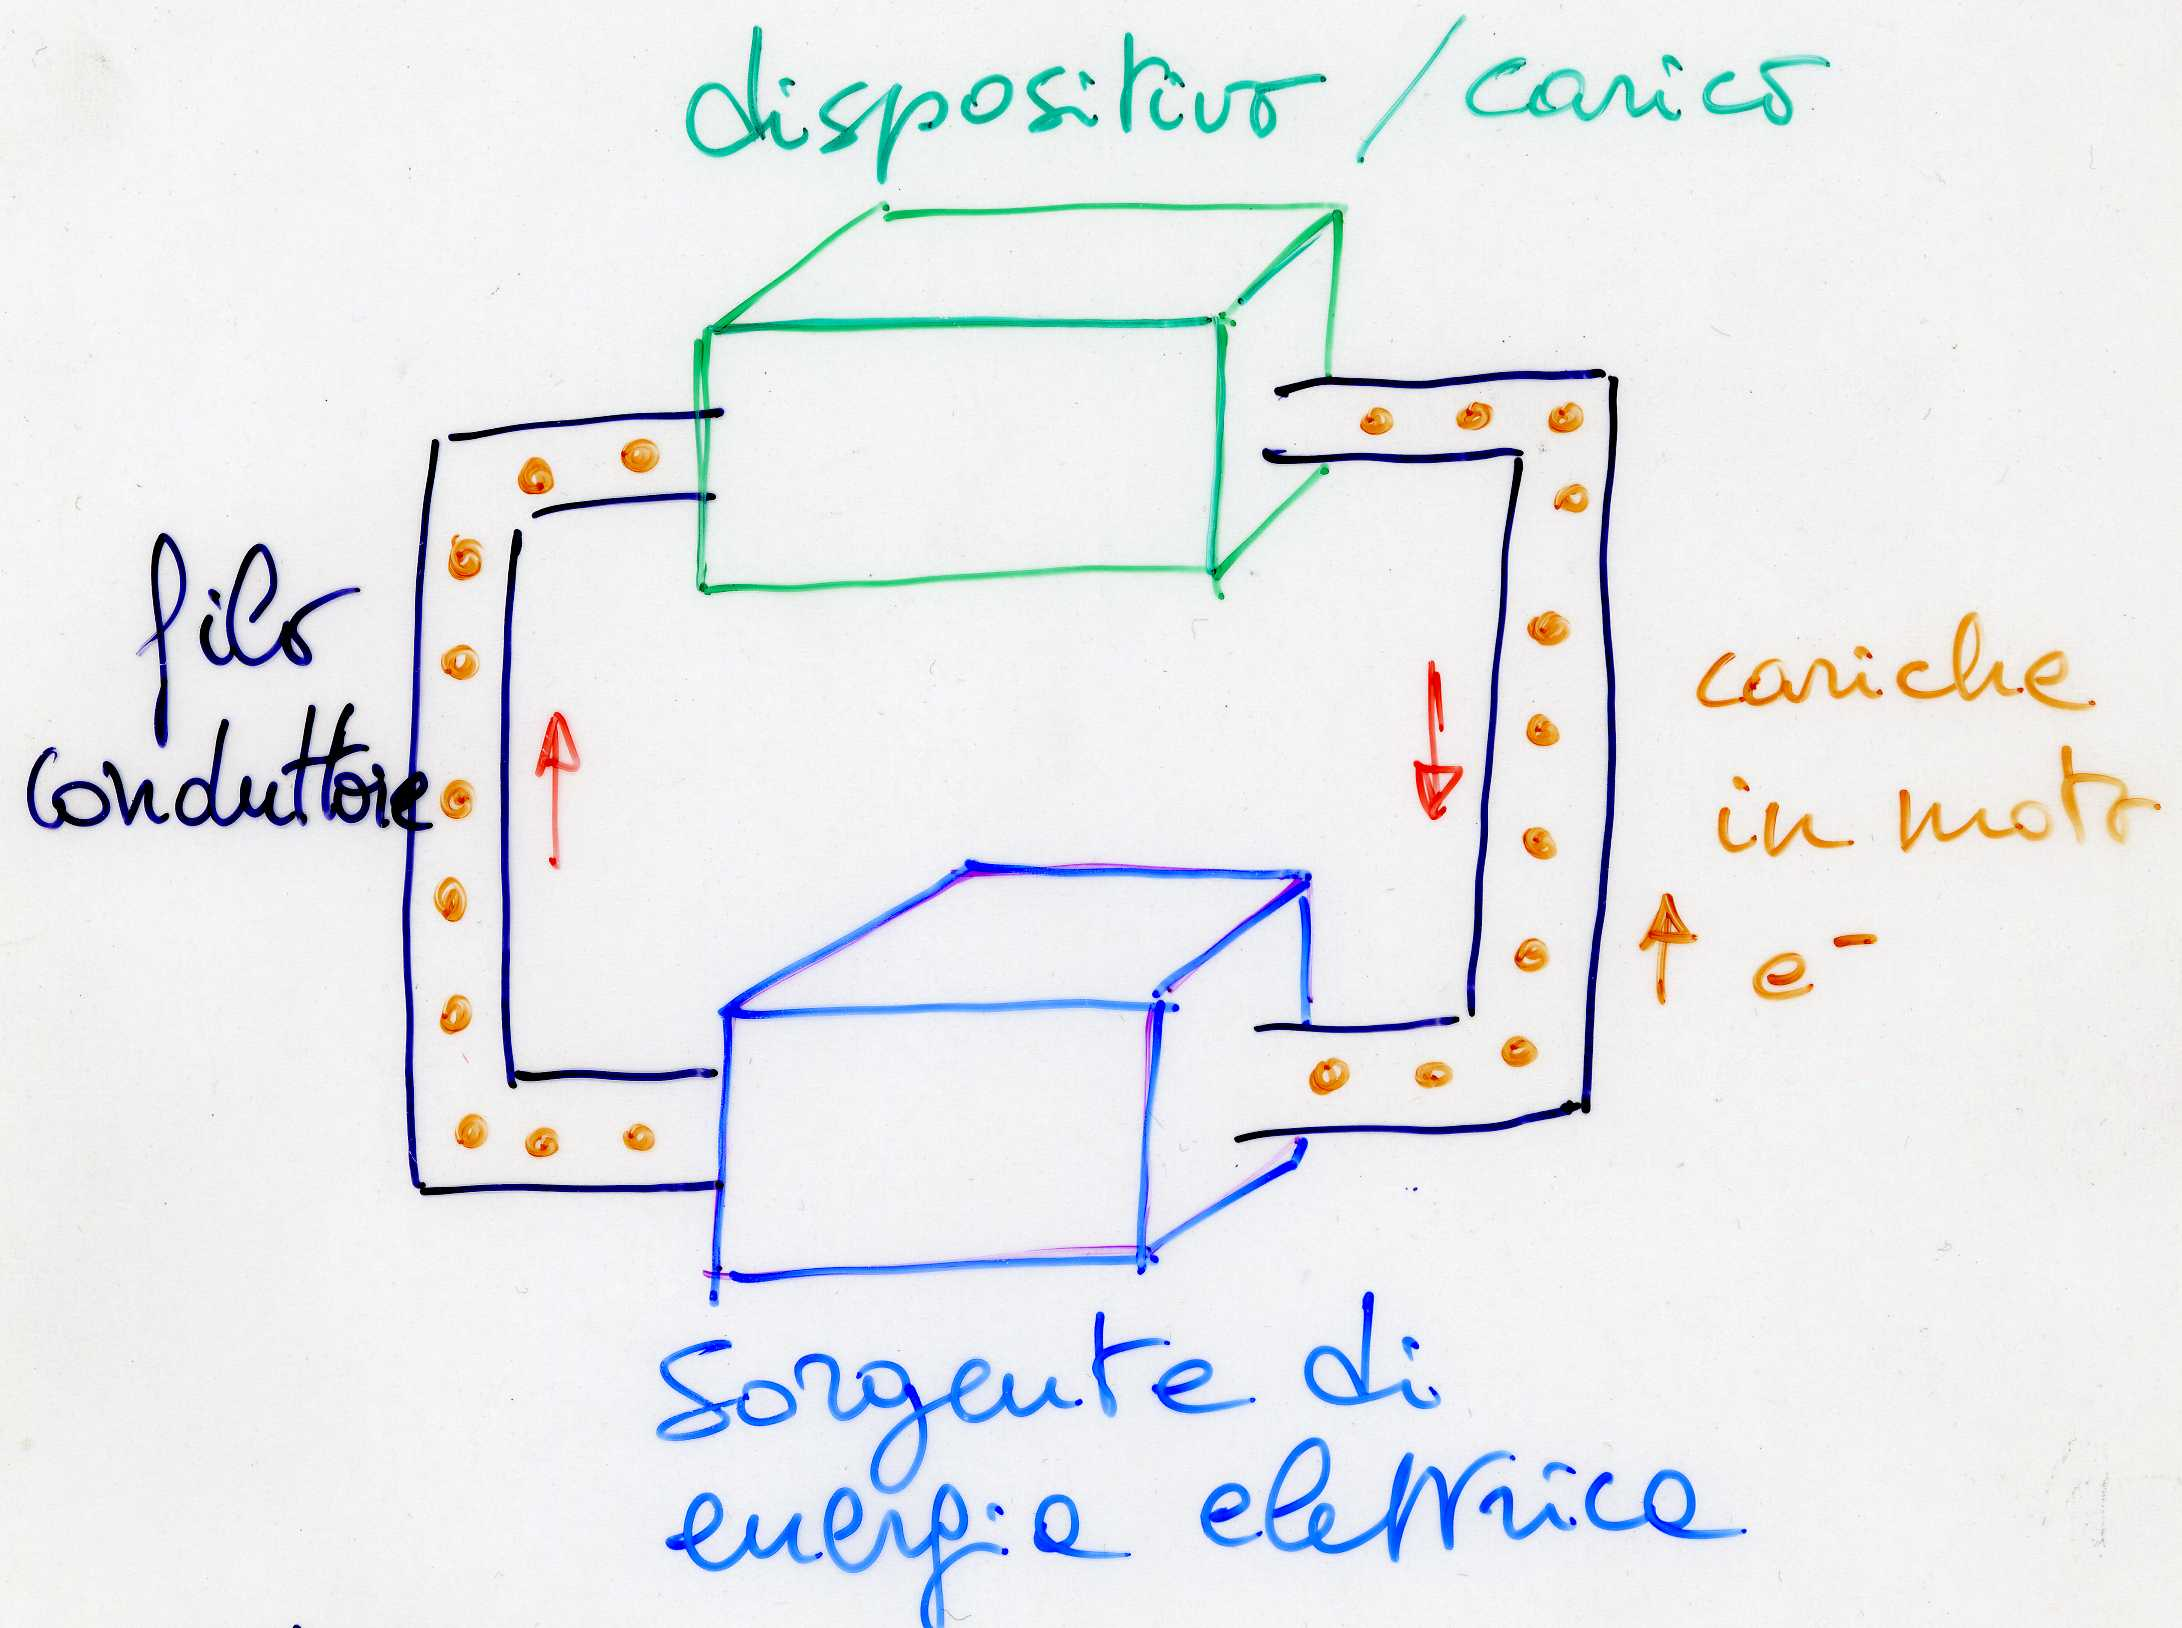 dispositivo / carico
filo
conduttore
cariche
in moto
e⁻
sorgente di
energia elettrica